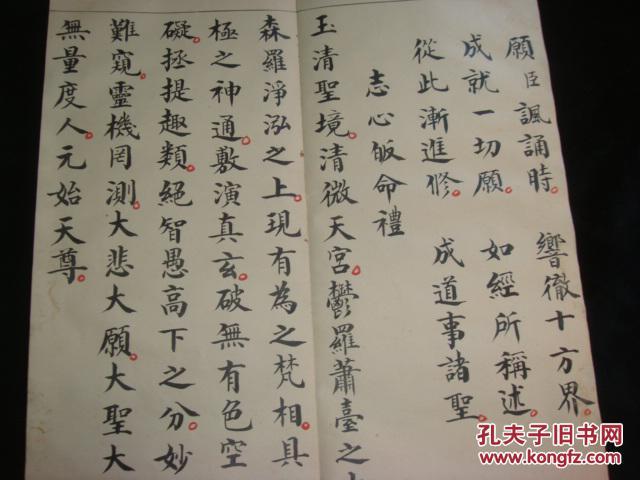 願臣諷誦時。響徹十方界。
成就一切願。如經所稱述。
從此漸進修。成道事諸聖。
志心皈命禮
玉清聖境。清微天宮。鬱羅蕭臺之
森羅淨泓之上。現有為之梵相。具
極之神通。敷演真玄。破無有色空
礙。拯提趣類。絕智愚高下之分。妙
難窺。靈機罔測。大悲大願。大聖大
無量度人。元始天尊。
孔夫子旧书网
www.kongfz.com